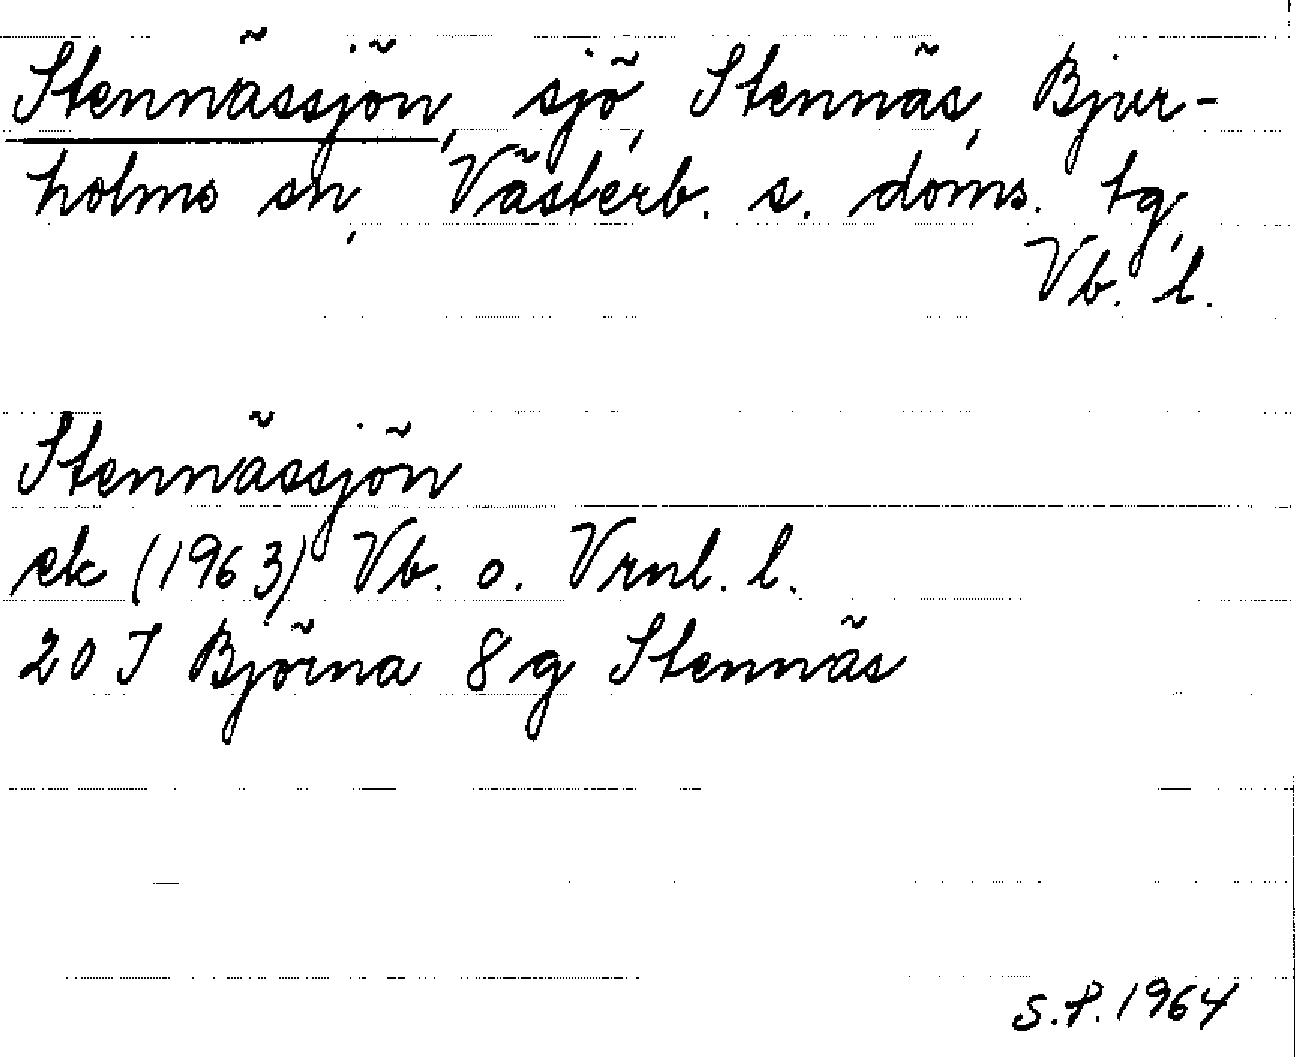 Stennässjön, sjö, Stennäs, Bjur-
holms sn, Västerb. s. doms. tg,
Vb. l.
Stennässjön
ek (1963) Vb. o. Vrnl. l.
20 J Björna 8 g Stennäs
S.P. 1964